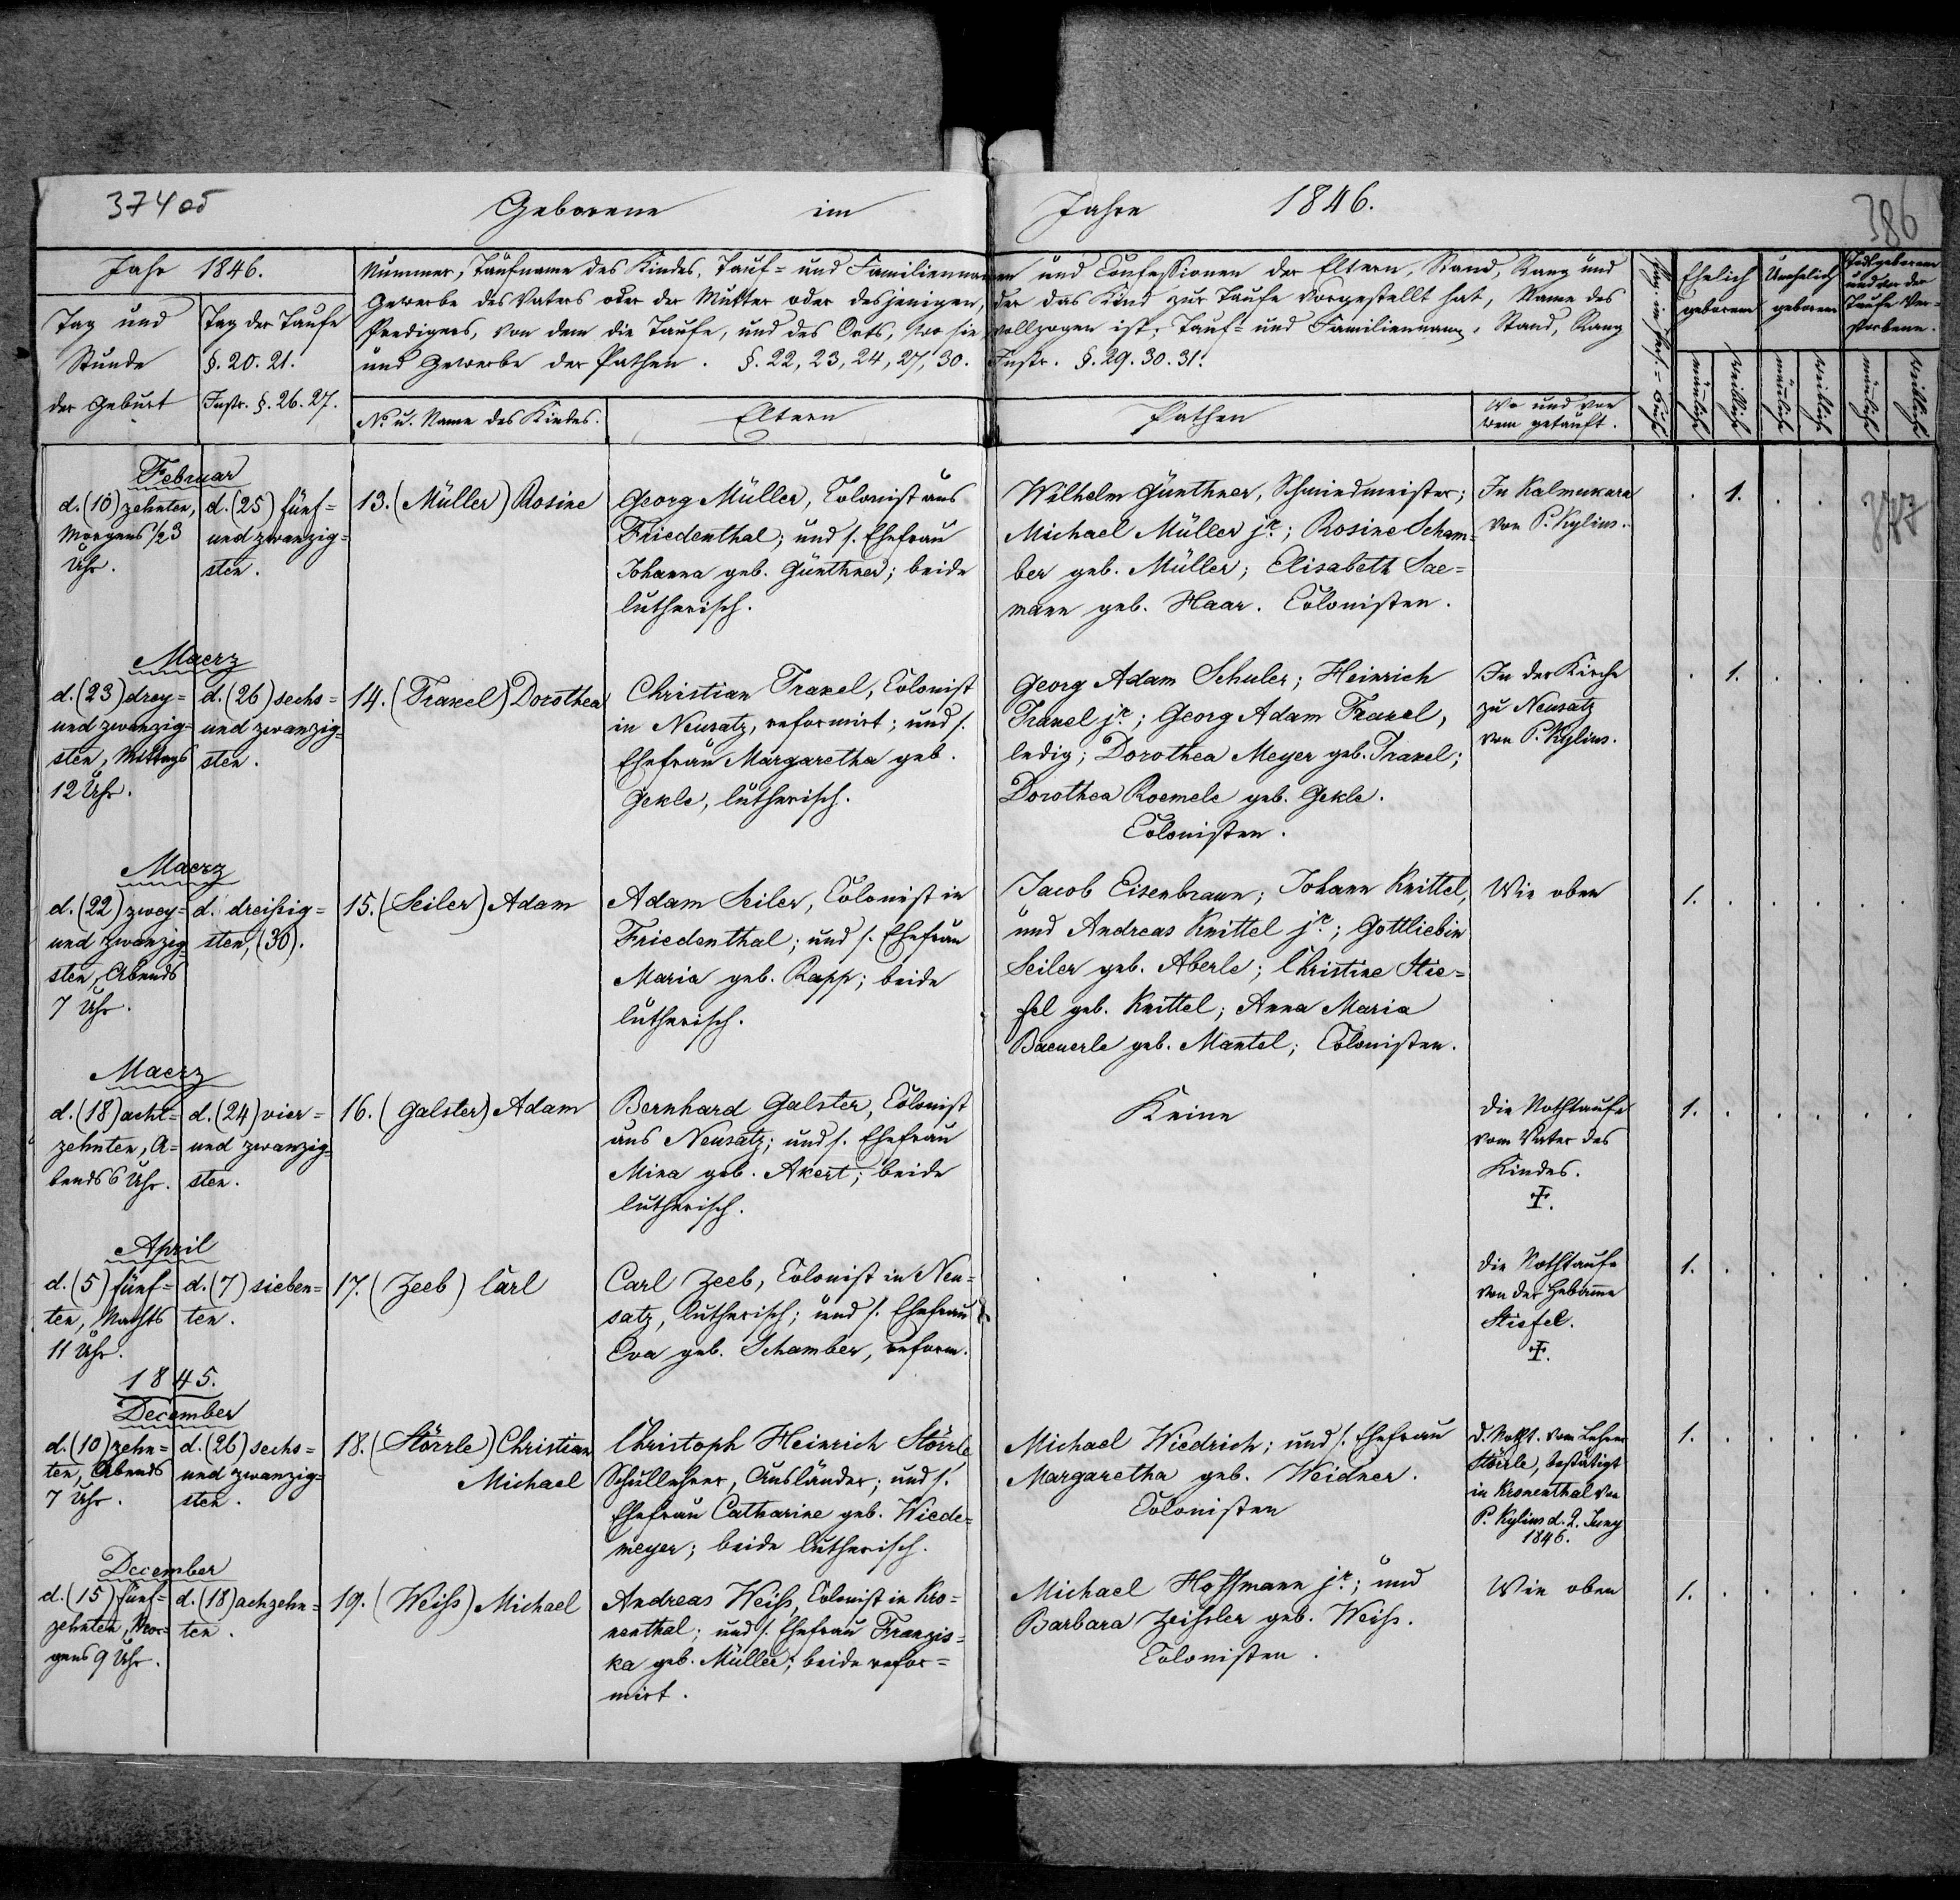 374 об
Geborene im Jahre 1846.
386
Jahr 1846.
Tag und Stunde der Geburt
Tag der Taufe
§. 20. 21.
Instr. §. 26. 27.
Nummer, Taufname des Kindes, Tauf= und Familiennamen und Confessionen der Eltern, Stand, Rang und
Gewerbe des Vaters oder der Mutter oder desjenigen, der das Kind zur Taufe vorgestellt hat, Name des
Predigers, von dem die Taufe, und des Orts, wo sie vollzogen ist. Tauf= und Familienname, Stand, Rang
und Gewerbe der Pathen. §. 22, 23, 24, 27, 30. Instr. §. 29. 30. 31.
No. u. Name des Kindes.
Eltern
Pathen
Wo und von
wem getauft.
Ehelich
geboren
Unehelich
geboren
Todtgeborene
und vor der
Taufe Ver=
storbene.
männlich
weiblich
männlich
weiblich
männlich
weiblich
Februar
d. (10) zehnten,
Morgens 1/2 3
Uhr.
d. (25) fünf=
und zwanzig=
sten.
13. (Müller) Rosine
Georg Müller, Colonist aus
Friedenthal; und s. Ehefrau
Johanna geb. Günthner; beide
lutherisch.
Wilhelm Günthner, Schmiedmeister;
Michael Müller jr.; Rosine Scham=
ber geb. Müller; Elisabeth Sae=
mann geb. Haar. Colonisten.
In Kalmukara
von P. Kylius.
1.
Maerz
d. (23) drey=
und zwanzig=
sten, Mittags
12 Uhr.
d. (26) sechs=
und zwanzig=
sten.
14. (Traxel) Dorothea
Christian Traxel, Colonist
in Neusatz, reformirt; und s.
Ehefrau Margaretha geb.
Gekle, lutherisch.
Georg Adam Schuler; Heinrich
Traxel jr.; Georg Adam Traxel,
ledig; Dorothea Meyer geb. Traxel;
Dorothea Roemele geb. Gekle.
Colonisten.
In der Kirche
zu Neusatz
von P. Kylius.
1.
Maerz
d. (22) zwey=
und zwanzig=
sten, Abends
7 Uhr.
d. dreißig=
sten, (30).
15. (Seiler) Adam
Adam Seiler, Colonist in
Friedenthal; und s. Ehefrau
Maria geb. Rapp; beide
lutherisch.
Jacob Eisenbraun; Johann Knittel,
und Andreas Knittel jr.; Gottliebin
Seiler geb. Aberle; Christine Stie=
fel geb. Knittel; Anna Maria
Baeuerle geb. Mantel; Colonisten.
Wie oben
1.
Maerz
d. (18) acht=
zehnten, A=
bends 6 Uhr.
d. (24) vier=
und zwanzig=
sten.
16. (Galster) Adam
Bernhard Galster, Colonist
aus Neusatz; und s. Ehefrau
Mina geb. Akert; beide
lutherisch.
Keine
Die Nothtaufe
vom Vater des
Kindes.
1.
April
d. (5) fünf=
ten, Nachts
11 Uhr.
d. (7) sieben=
ten.
17. (Zeeb) Carl
Carl Zeeb, Colonist in Neu=
satz, lutherisch; und s. Ehefrau
Eva geb. Schamber, reform.
Die Nothtaufe
von der Hebamme
Stiefel.
1.
1845.
December
d. (10) zehn=
ten, Abends
7 Uhr.
d. (26) sechs=
und zwanzig=
sten.
18. (Störrle) Christian
Michael
Christoph Heinrich Störrle,
Schullehrer, Ausländer; und s.
Ehefrau Catharine geb. Wiede=
meyer; beide lutherisch.
Michael Wiedrich; und s. Ehefrau
Margaretha geb. Weidner.
Colonisten
D. Notht. vom Lehrer
Störrle, bestätigt
in Kronenthal von
P. Kylius d. 2. Juny
1846.
1.
December
d. (15) fünf=
zehnten, Mor=
gens 9 Uhr.
d. (18) achzehn=
ten.
19. (Weiss) Michael
Andreas Weiss, Colonist in Kro=
nenthal; und s. Ehefrau Franzis=
ka geb. Müller; beide refor=
mirt.
Michael Hoffmann jr.; und
Barbara Zeissler geb. Weiss.
Colonisten.
Wie oben
1.